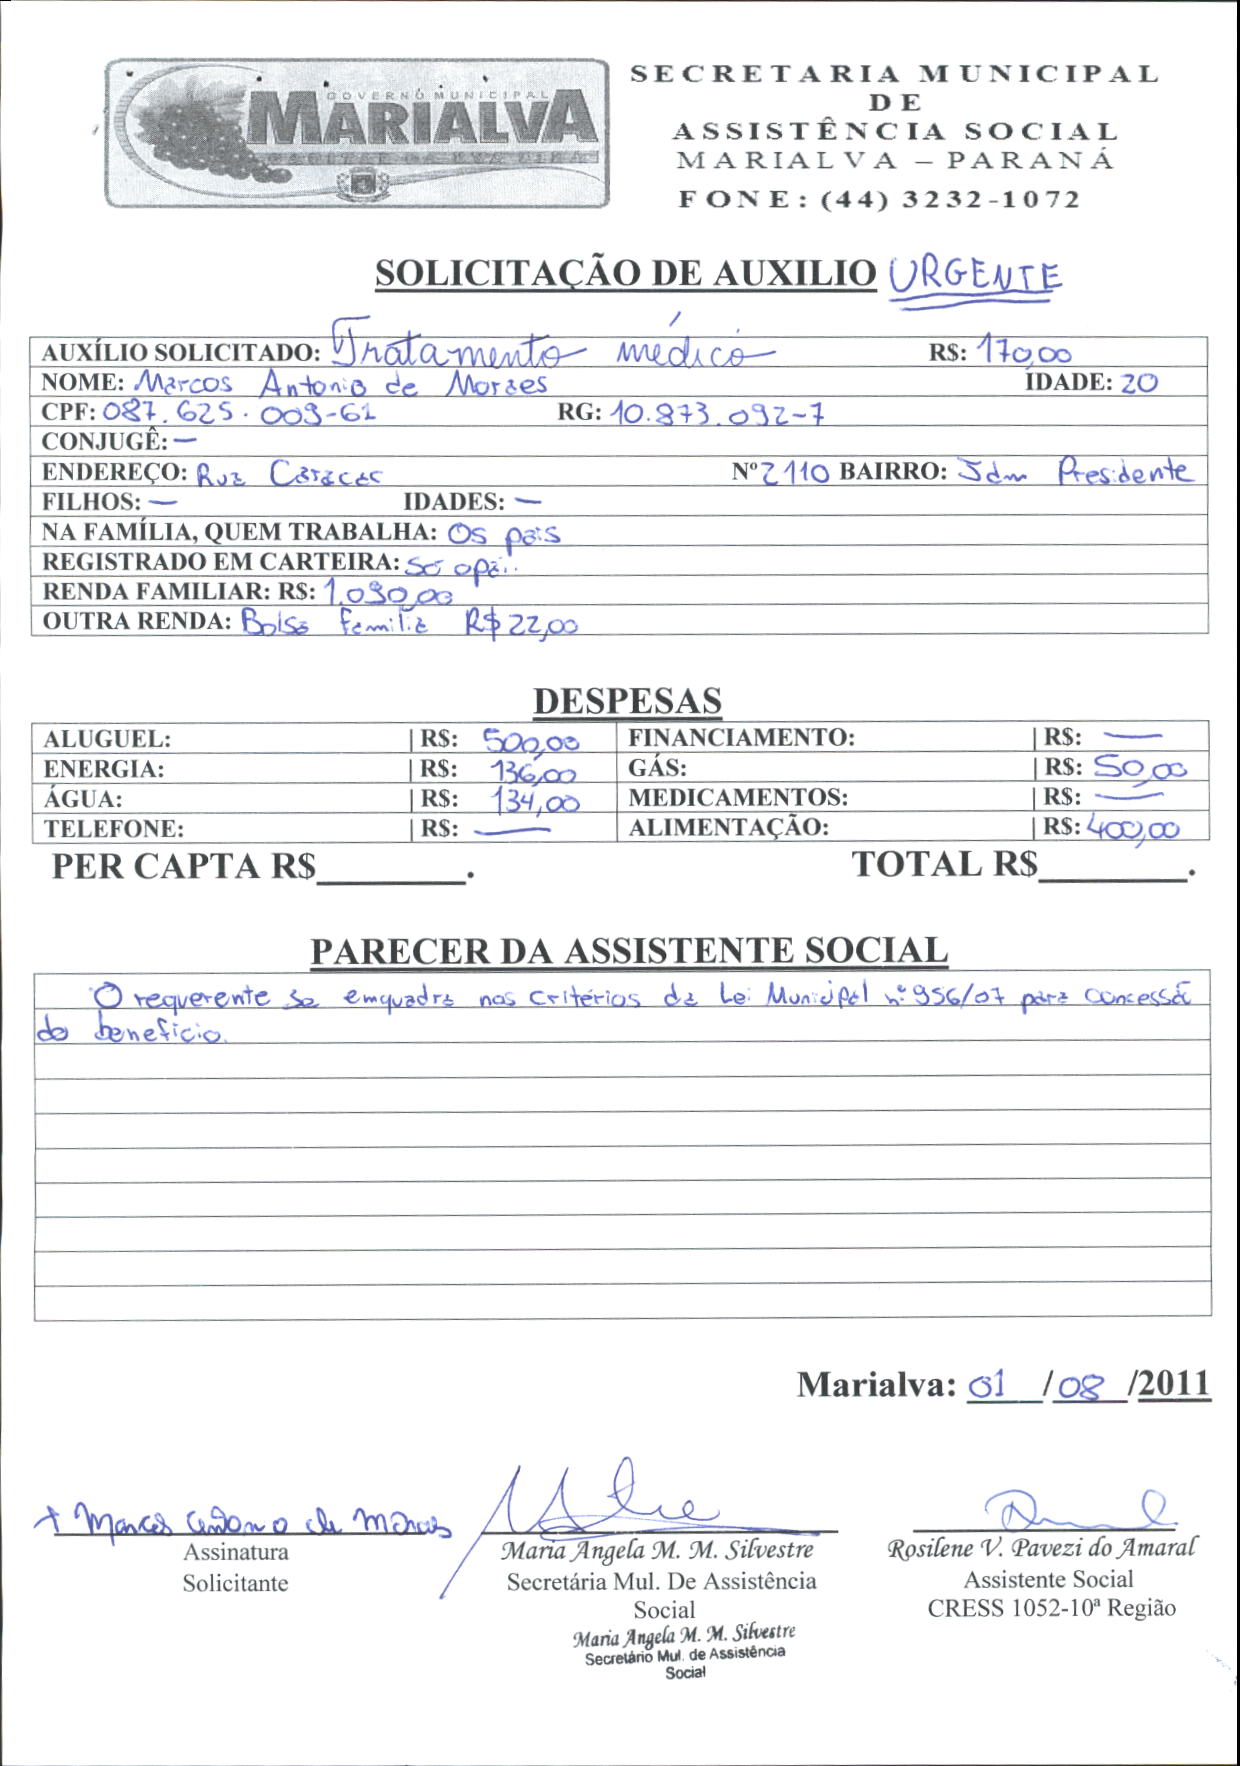 GOVERNO MUNICIPAL
MARIALVA
CAPITAL DA UVA FINA
SECRETARIA MUNICIPAL
DE
ASSISTÊNCIA SOCIAL
MARIALVA – PARANÁ
FONE: (44) 3232-1072
SOLICITAÇÃO DE AUXILIO URGENTE
AUXÍLIO SOLICITADO: Tratamento médico R$: 170,00
NOME: Marcos Antonio de Moraes IDADE: 20
CPF: 087.625.009-61 RG: 10.873.092-7
CONJUGÊ: —
ENDEREÇO: Rua Caracas Nº 2110 BAIRRO: Jdm Presidente
FILHOS: — IDADES: —
NA FAMÍLIA, QUEM TRABALHA: Os pais
REGISTRADO EM CARTEIRA: Só o pai.
RENDA FAMILIAR: R$: 1.090,00
OUTRA RENDA: Bolsa Família R$ 22,00
DESPESAS
ALUGUEL: | R$: 500,00 FINANCIAMENTO: | R$: —
ENERGIA: | R$: 136,00 GÁS: | R$: 50,00
ÁGUA: | R$: 134,00 MEDICAMENTOS: | R$: —
TELEFONE: | R$: — ALIMENTAÇÃO: | R$: 400,00
PER CAPTA R$________. TOTAL R$________.
PARECER DA ASSISTENTE SOCIAL
O requerente se emquadra nos critérios da Lei Municipal nº 956/07 para concessão
do benefício.
Marialva: 01 /08 /2011
+ Marcos Antonio de Moraes
Assinatura
Solicitante
Maria Angela M. M. Silvestre
Secretária Mul. De Assistência
Social
Maria Angela M. M. Silvestre
Secretário Mul. de Assistência
Social
Rosilene V. Pavezi do Amaral
Assistente Social
CRESS 1052-10ª Região